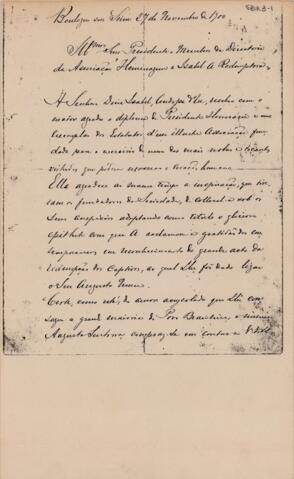 Boulogne sur Seine 27 de Novembro de 1900
Illmos Snrs Presidente e Membros da Directoria
da Associação Homenagem a Isabel A Redemptora
A Senhora Dona Isabel, Condessa d'Eu, recebeu com o
maior apreço o diploma de Presidente Honoraria e um
exemplar dos Estatutos d'essa illustre Associação, fun
dada para o exercicio de uma das mais nobres e tocantes
virtudes que pódem ennobrecer o coração humano.
Ella agradece ao mesmo tempo a inspiração que tive
ram os fundadores da Sociedade, de collocal-a sob os
Seus auspicios adoptando como titulo o glorioso
epitheto com que A acclamou a gratidão con
temporanea em reconhecimento do grande acto da
redempção dos Captivos, ao qual Lhe foi dado ligar
o Seu Augusto Nome.
Certa, como está, do amor acrysolado que Lhe con
sagra a grande maioria do Povo Brazileiro, a mesma
Augusta Senhora compraz-se em contar a